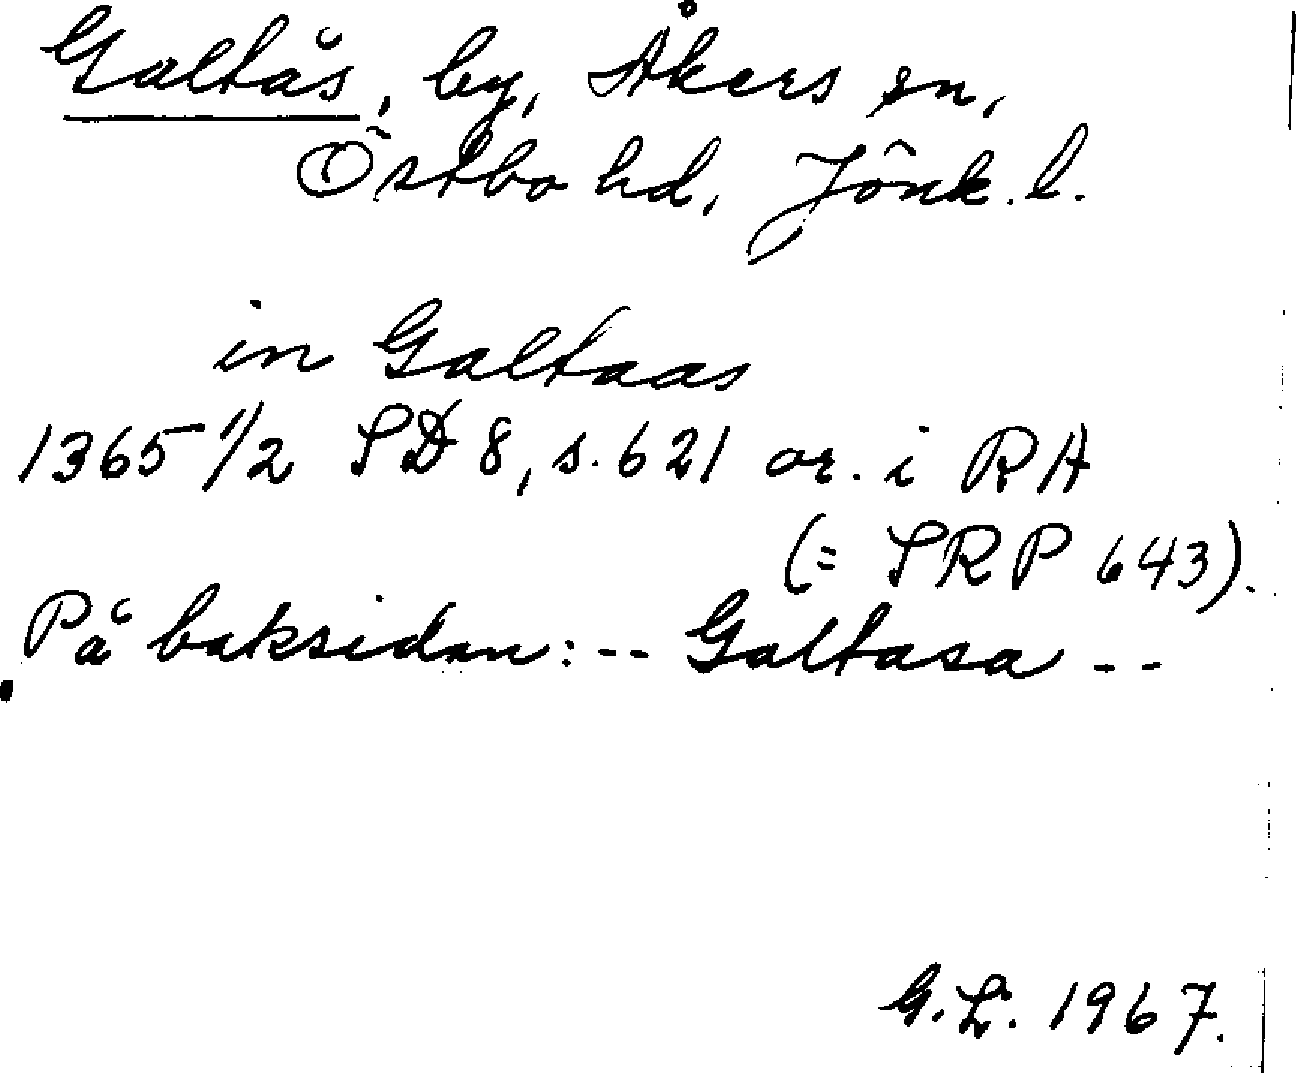 Galtås, by, Åkers sn,
Östbo hd, Jönk. l.
in Galtaas
1365 1/2 SD 8, s. 621 or. i RA
(= SRP 643).
På baksidan: -- Galtasa --
G.L. 1967.